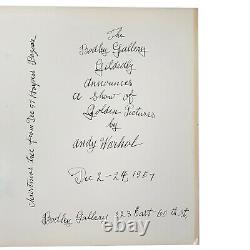 The
Bodley Gallery
Gildedly
announces
a Show of
Golden Pictures
by
Andy Warhol
Dec 2-24, 1957
Bodley Gallery 223 East 60th St,
Christmas tree from Dec 57 Harpers Bazaar